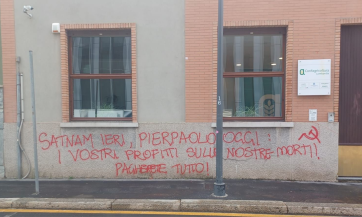 SATNAM IERI, PIERPAOLO OGGI:
I VOSTRI PROFITTI SULLE NOSTRE MORTI!
PAGHERETE TUTTO!